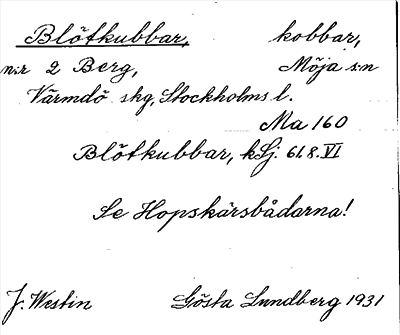 Blötkubbar, kobbar,
n:r 2 Berg, Möja s:n
Värmdö skg, Stockholms l.
Ma 160
Blötkubbar, kSj. 61.8.VI
Se Hopskärsbådarna!
J. Westin Gösta Lundberg 1931